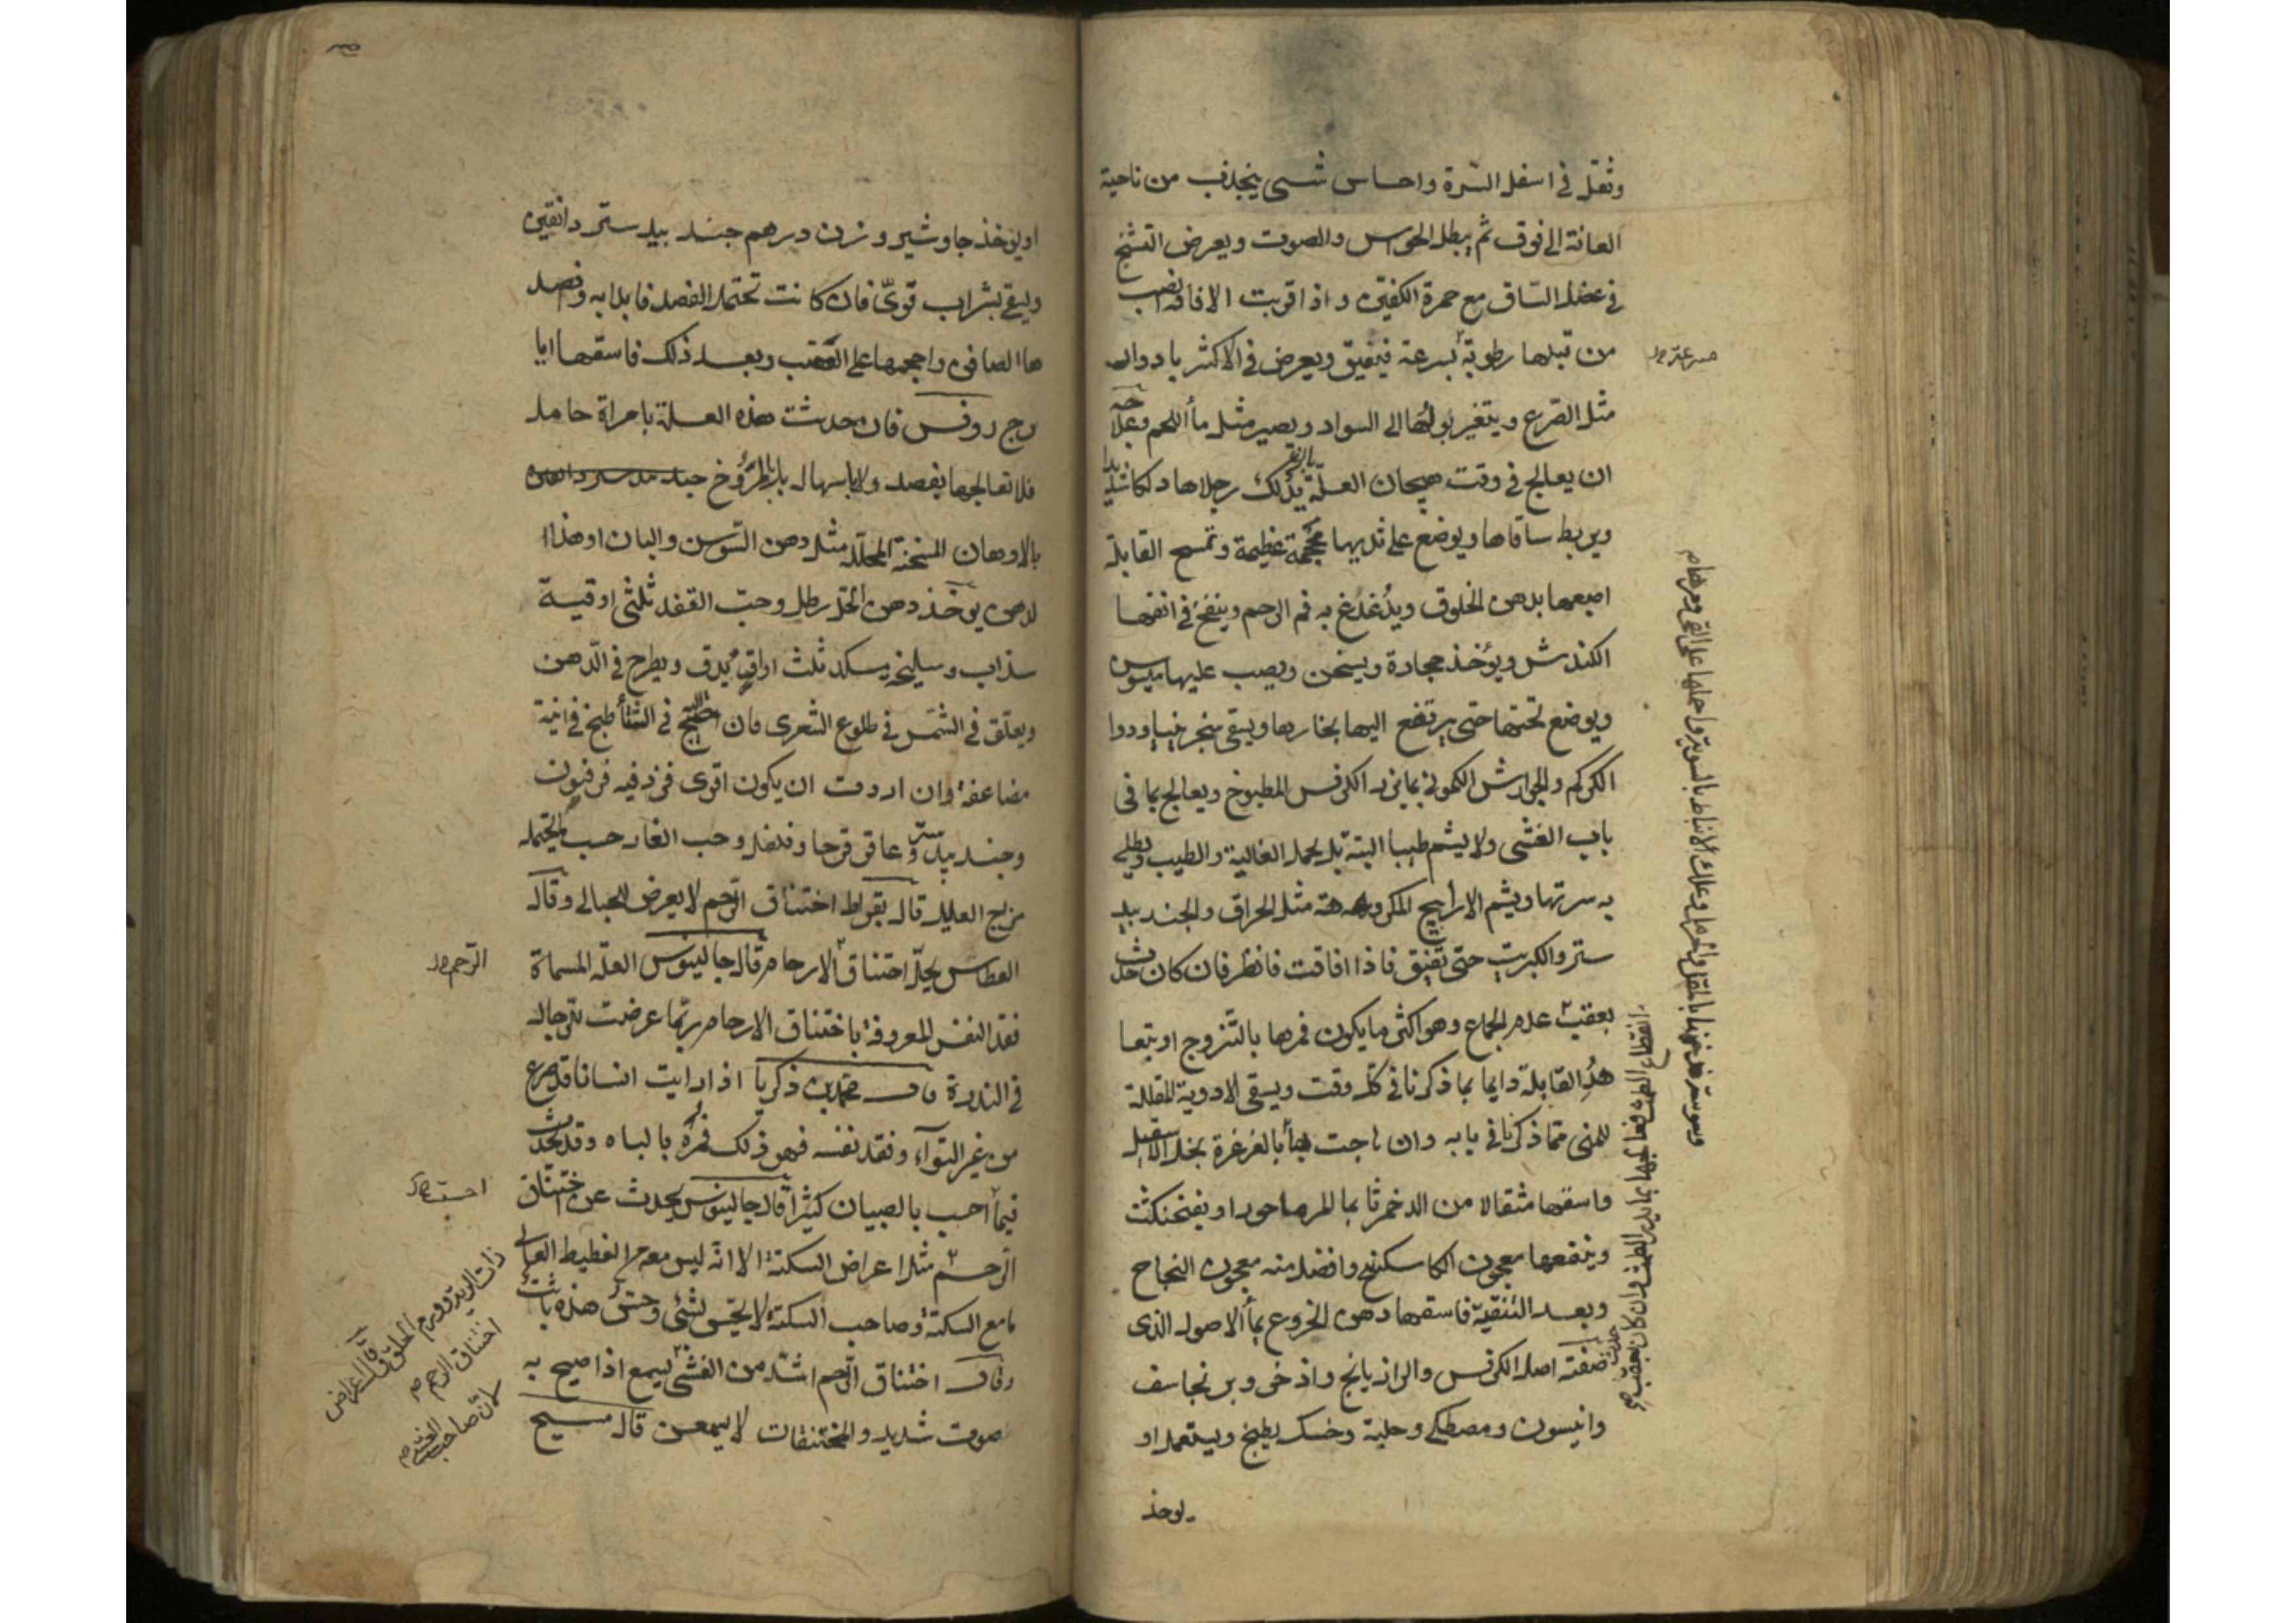 وثقل في اسفل السرة واحساس شىء ينجذب من ناحية
العانة الى فوق ثم يبطل الحواس والصوت ويعرض التشنج
في عضل الساق مع حمرة الكفين واذا قربت الافاقة انصب
من قبلها رطوبة بسرعة فيفيق ويعرض في الاكثر بادوار
مثل الصرع ويتغير بولها الى السواد ويصير مثل مأ اللحم وعلاجه
ان يعالج في وقت هيجان العلة بدلك رجلاها دلكا شديدا
ويربط ساقاها ويوضع على ثدييها محجمة عظيمة وتمسح القابلة
اصبعها بدهن الخلوق ويدغدغ به فم الرحم وينفخ في انفها
الكندش ويؤخذ حجارة ويسخن ويصب عليها ميسوس
ويوضع تحتها حتى يرتفع اليها بخارها ويسقى سنجرنيا ودوا
الكركم والجوارش الكموني بما بزر الكرفس المطبوخ ويعالج بما في
باب الغشى ولا يشم طيبا البتة بل يحمل الغالية والطيب ويطلى
به سرتها ويشم الارابيح المكروهة مثل الحراق والجند بيد
ستر والكبريت حتى تفيق فاذا افاقت فانظر فان كان حدث
بعقب عدم الجماع وهو اكثر ما يكون فمرها بالتزوج او بتعا
هد القابلة دايما بما ذكرنا في كل وقت ويسقى الادوية المقللة
للمنى مما ذكرنا في بابه وان بالغرغرة بخل الاسقيل
واسقها مثقالا من الدخمرثا بما او بفنجنكشت
وينفعها معجون الكاسكبينج وافضل منه معجون النجاح
وبعد التنقية فاسقها دهن الخروع بمأ الاصول الذى
صفته اصل الكرفس والرازيانج واذخر وبرنجاسف
وانيسون ومصطكى وحلبة وخسك يطبخ ويستعمل او
يوخذ
انقطاع الطمث فعالجها بما يدر الطمث وان كان حدث بعقب
او يؤخذ جاوشير وزن درهم جند بيد ستر دانقين
ويسقى بشراب قوى فان كانت تحتمل الفصد فابدا به وفصد
ها الصافن واحجمها على العقب وبعد ذلك فاسقها ايا
رج روفس فان حدثت هذه العلة بامراة حامل
فلا تعالجها بفصد ولا باسهال بل بالمروخ
بالادهان المسخنة المحللة مثل دهن السوسن والبان او هذا ا
لدهن يوخذ دهن الخل رطل وحب الفقد ثلثى اوقية
سذاب وسليخة وسك ثلث اواق يدق ويطرح في الدهن
ويعلق في الشمس في طلوع الشعرى فان احتيج في الشتأ طبخ في انية
مضاعفة وان اردت ان يكون اقوى فزد فيه فرفيون
وجند بيد ستر وعاقرقرحا وفلفل وحب الغار حسب ما يحتمله
مزاج العليل قال بقراط اختناق الرحم لا يعرض للحبالى وقال
العطاس يحل اختناق الارحام قال جالينوس العلة المسماة
فقد النفس المعروفة باختناق الارحام ربما عرضت للرجال
في الندرة قال محمد بن زكريا اذا رايت انسانا قد صرع
من غير التوآء وفقد نفسه فهو ذلك فمره بالباه وقد يحدث
فيما احسب بالصبيان كثيرا قال جالينوس يحدث عن اختناق
الرحم مثل اعراض السكتة الا انه ليس معه الغطيط العا
مع السكتة وصاحب السكتة لا يحس بشئ وحس هذه ثابت
وقال اختناق الرحم اشد من الغشى يسمع اذا صيح به
صوت شديد والمختنقات لا يسمعن قال مسيح
الرحم صح
احسب صح
اختناق الرحم صح
لان صاحب الغشى صح